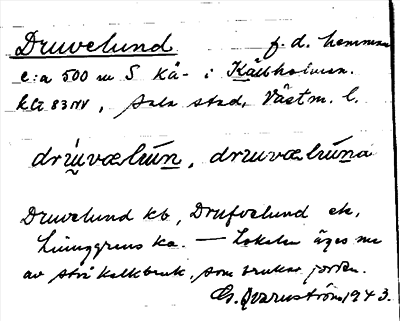 Druvelund f. d. hemman
c:a 500 m S Kå- i Kålholmen.
, Sala stad, Västm. l.
drúvælún, druvælúna
Druvelund kb, Drufvelund ek,
Ljunggrens ka. — Lokalen äges nu
av Strå kalkbruk, som brukar jorden.
Gs. Qvarnström 1943.